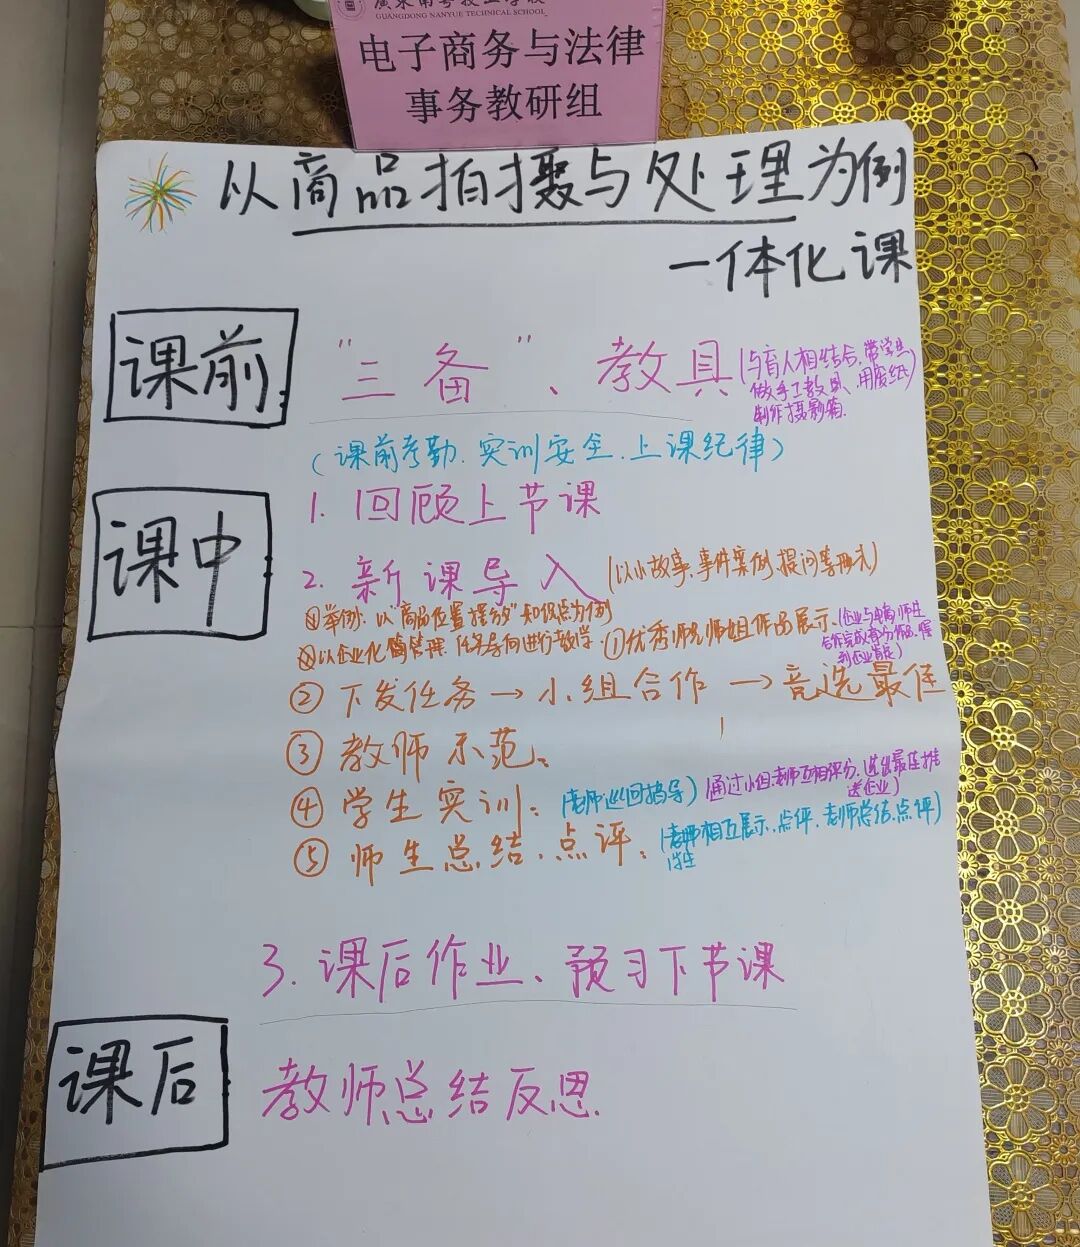 廣東南粤技工学校
GUANGDONG NANYUE TECHNICAL SCHOOL
电子商务与法律
事务教研组
以商品拍摄与处理为例
一体化课
课前
"三备"、教具
(与育人相结合,带学生
做手工教具,用废纸
制作摄影箱)
(课前考勤、实训安全、上课纪律)
课中
1. 回顾上节课
2. 新课导入
(以小故事、事件案例、提问等形式)
举例:以"商品位置摆放"知识点为例
以企业化管理、任务导向进行教学
①优秀师兄师姐作品展示、
(企业与电商师生
合作完成部分作品,得
到企业肯定)
② 下发任务→小组合作→竞选最佳
③ 教师示范。
④ 学生实训:
(老师巡回指导)
(通过小组、老师互相评分,选出最佳推
送企业)
⑤ 师生总结、点评:
(学生相互展示、点评,老师总结、点评)
3. 课后作业、预习下节课
课后
教师总结反思.